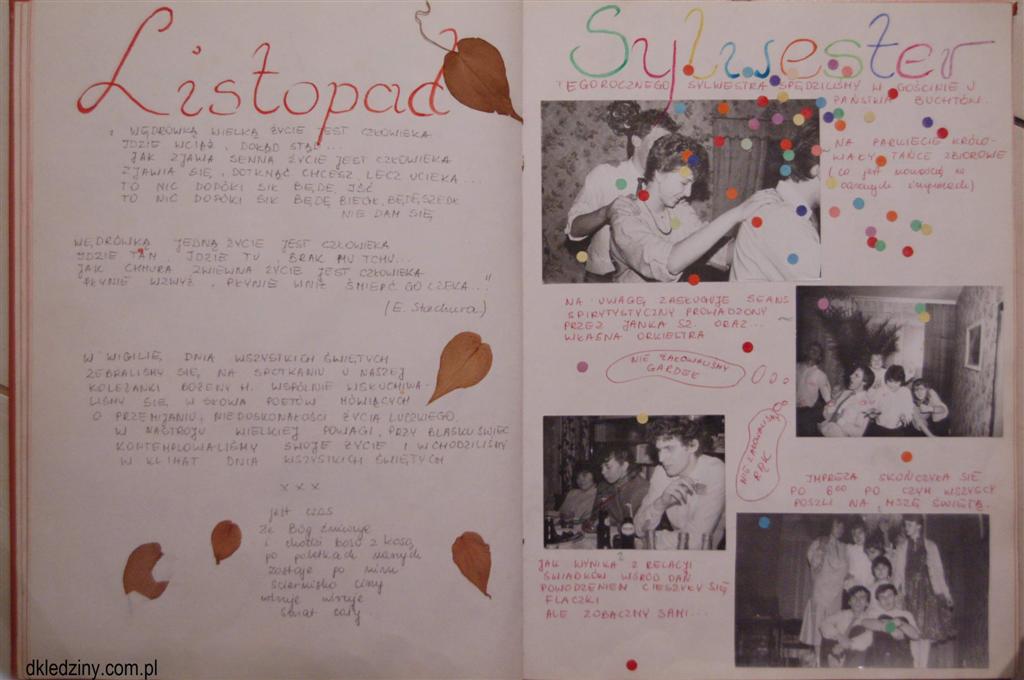 Listopad
" WĘDRÓWKĄ WIELKĄ ŻYCIE JEST CZŁOWIEKA
IDZIE WCIĄŻ, DOKĄD STĄD...
JAK ZJAWA SENNA ŻYCIE JEST CZŁOWIEKA
ZJAWIA SIĘ, DOTKNĄĆ CHCESZ, LECZ UCIEKA...
TO NIC DOPÓKI SIŁ BĘDĘ IŚĆ
TO NIC DOPÓKI SIŁ BĘDĘ BIEGŁ, BĘDĘ SZEDŁ
NIE DAM SIĘ
WĘDRÓWKĄ JEDNĄ ŻYCIE JEST CZŁOWIEKA
IDZIE TAM, IDZIE TU, BRAK MU TCHU...
JAK CHMURA ZWIEWNA ŻYCIE JEST CZŁOWIEKA
PŁYNIE WZWYŻ, PŁYNIE WNIŻ ŚMIERĆ GO CZEKA..."
(E. Stachura)
W WIGILIĘ DNIA WSZYSTKICH ŚWIĘTYCH
ZEBRALIŚMY SIĘ NA SPOTKANIU U NASZEJ
KOLEŻANKI BOŻENY H. WSPÓLNIE WSŁUCHIWA-
LIŚMY SIĘ W SŁOWA POETÓW MÓWIĄCYCH
O PRZEMIJANIU, NIEDOSKONAŁOŚCI ŻYCIA LUDZKIEGO.
W NASTROJU WIELKIEJ POWAGI, PRZY BLASKU ŚWIEC
KONTEMPLOWALIŚMY SWOJE ŻYCIE I WCHODZILIŚMY
W KLIMAT DNIA WSZYSTKICH ŚWIĘTYCH
x x x
jest czas
że Bóg
i chodzi boso z kosą
po poletkach
zostaje po nim
ściernisko
świat cały
Sylwester
TEGOROCZNEGO SYLWESTRA SPĘDZILIŚMY W GOŚCINIE U
PAŃSTWA BUCHTÓW.
NA PARKIECIE KRÓLO-
WAŁY TAŃCE ZBIOROWE
(co jest nowością na
naszych imprezach)
NA UWAGĘ ZASŁUGUJE SEANS
SPIRYTYSTYCZNY PROWADZONY
PRZEZ JANKA SZ. ORAZ...
WŁASNA ORKIESTRA
NIE ŻAŁOWALIŚMY
GARDEŁ
NIE ŻAŁOWALIŚMY
RĄK
IMPREZA SKOŃCZYŁA SIĘ
PO 6⁰⁰ PO CZYM WSZYSCY
POSZLI NA MSZĘ ŚWIĘTĄ.
JAK WYNIKA Z RELACJI
ŚWIADKÓW WŚRÓD DAŃ
POWODZENIEM CIESZYŁY SIĘ
FLACZKI
ALE ZOBACZMY SAMI...
dkledziny.com.pl